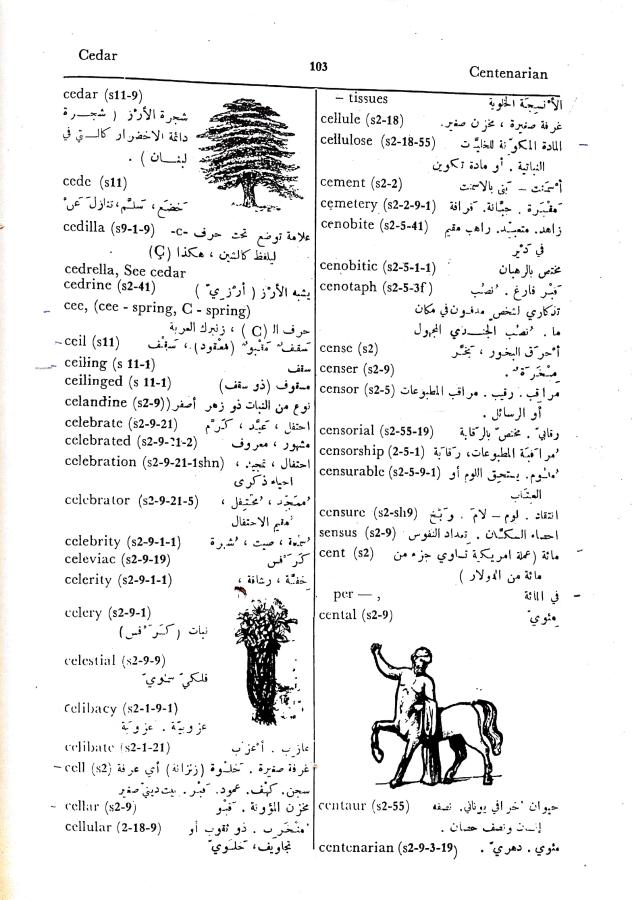 Cedar
103
Centenarian
cedar (s11-9)
شجرة الأرز ( شجرة
دائمة الاخضرار كالتي في
لبنان ) .
cede (s11)
خضع ، سلم، تنازل عن
cedilla (s9-1-9) علامة توضع تحت حرف -c-
ليلفظ كالشين ، هكذا (Ç)
cedrella, See cedar
cedrine (s2-41) يشبه الأرز ( أرزي )
cee, (cee - spring, C - spring)
حرف الـ ( C ) ، زنبرك العربة
ceil (s11) سقف
ceiling (s 11-1) سقف
ceilinged (s 11-1) مسقوف (ذو سقف)
celandine (s2-9)) نوع من النبات ذو زهر أصفر
celebrate (s2-9-21) احتفل ، عيد ، كرم
celebrated (s2-9-21-2) مشهور ، معروف
celebration (s2-9-21-1shn) احتفال ، تمجيد ،
احياء ذكرى
celebrator (s2-9-21-5) ممجد ، محتفل ،
مقيم الاحتفال
celebrity (s2-9-1-1) سمعة ، صيت ، شهرة
celeviac (s2-9-19) كرفس
celerity (s2-9-1-1) خفة ، رشاقة ،
celery (s2-9-1)
نبات (كرفس)
celestial (s2-9-9)
فلكي سماوي
celibacy (s2-1-9-1)
عزوبية . عزوبة
celibate (s2-1-21) عازب . أعزب
cell (s2) غرفة صغيرة . خلوة (زنزانة) أي غرفة
سجن. كهف. عمود. قبر. بيت ديني صغير
cellar (s2-9) مخزن المؤونة . قبو
cellular (2-18-9) منخرب . ذو ثقوب أو
تجاويف، خلوي
– tissues الأنسجة الخلوية
cellule (s2-18) غرفة صغيرة ، مخزن صغير.
cellulose (s2-18-55) المادة المكونة للخليات
النباتية . أو مادة تكوين
cement (s2-2) أسمنت – بنى بالاسمنت
cemetery (s2-2-9-1) مقبرة . جبانة. قرافة
cenobite (s2-5-41) زاهد. متعبد. راهب مقيم
في دير
cenobitic (s2-5-1-1) مختص بالرهبان
cenotaph (s2-5-3f) قبر فارغ . نصب
تذكاري لشخص مدفون في مكان
ما . نصب الجندي المجهول
cense (s2) أحرق البخور ، بخر
censer (s2-9) مبخرة .
censor (s2-5) مراقب. رقيب. مراقب المطبوعات
أو الرسائل .
censorial (s2-55-19) رقابي . مختص بالرقابة
censorship (2-5-1) مراقبة المطبوعات، رقابة
censurable (s2-5-9-1) ملوم. يستحق اللوم أو
العتاب
censure (s2-sh9) انتقاد . لوم – لام . وبخ
sensus (s2-9) احصاء السكان . تعداد النفوس
cent (s2) مائة (عملة امريكية تساوي جزء من
مائة من الدولار )
per – , في المائة
cental (s2-9) مئوي
centaur (s2-55) حيوان خرافي يوناني. نصفه
إنسان ونصف حصان .
centenarian (s2-9-3-19) مئوي . دهري .